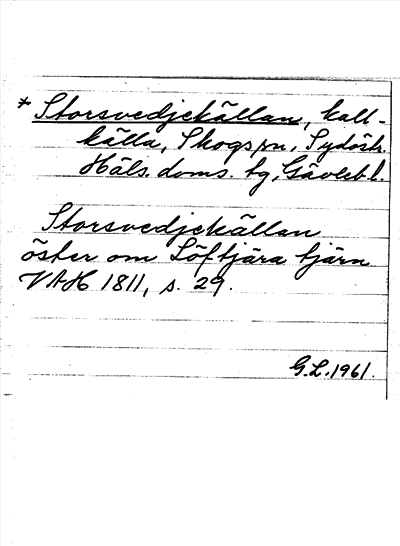 * Storsvedjekällan, kall-
källa, Skogs sn, Sydöstr.
Häls. doms. tg, Gävleb. l.
Storsvedjekällan
öster om Löftjära tjärn
VAH 1811, s. 29.
G.L. 1961.